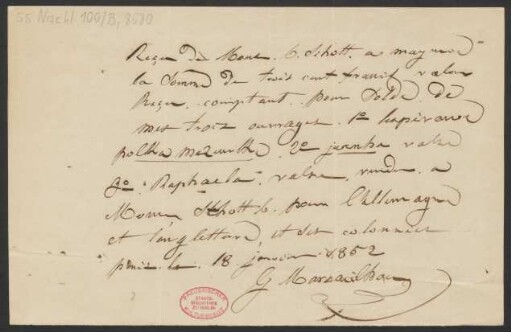 55 Nachl 100/B, 8680
Reçu de Mons. B. Schott, a mayence
la Somme de trois cent francs valeur
Reçu, comptant pour Solde, de
mes trois ouvrages. 1o
polka mazurka, 2o valse
3o Raphaela, valse, vendu a
Mons. Schott, pour l'allemagne
et l'angleterre, et ses colonnies
paris le 18 janvier 1862
G Marcailhou